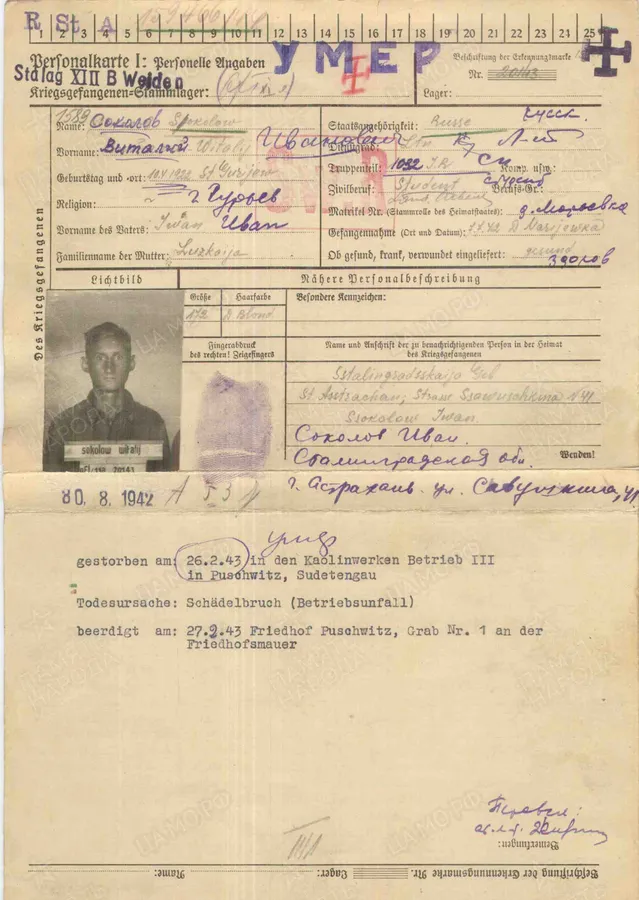 R St A 159466
1 2 3 4 5 6 7 8 9 10 11 12 13 14 15 16 17 18 19 20 21 22 23 24 25
Personalkarte I: Personelle Angaben
УМЕР
Beschriftung der Erkennungsmarke
Stalag XIII B Weiden
Nr. 20143
Kriegsgefangenen-Stammlager:
Lager:
Des Kriegsgefangenen
1589
Name: Соколов Ssokolow
Staatsangehörigkeit: Russe русск.
Vorname: Виталий Witaly Иванович
Dienstgrad: Ltn Л-т
Truppenteil: 1032 J.R. Komp. usw.:
Geburtstag und -ort: 10.V.1922 St. Gurjow
Zivilberuf: Student Berufs-Gr.:
г. Гурьев
Religion:
Matrikel Nr. (Stammrolle des Heimatstaates): д. Марьевка
Vorname des Vaters: Iwan Иван
Gefangennahme (Ort und Datum): 7.7.42 D Marjewka
Familienname der Mutter: Luzkaija
Ob gesund, krank, verwundet eingeliefert: gesund
здоров
Lichtbild
Nähere Personalbeschreibung
Größe
Haarfarbe
Besondere Kennzeichen:
172
D Blond
Fingerabdruck
des rechten! Zeigefingers
Name und Anschrift der zu benachrichtigenden Person in der Heimat
des Kriegsgefangenen
Sstalingradsskaija Geb
St Asstrachan, Strasse Ssawuschkina N 41
Ssokolow Iwan
sokolow witalij
20143
Соколов Иван
Сталинградская обл.
Wenden!
г. Астрахань ул. Савушкина, 41
30. 8. 1942
A 53
умер
gestorben am: 26.2.43 in den Kaolinwerken Betrieb III
in Puschwitz, Sudetengau
Todesursache: Schädelbruch (Betriebsunfall)
beerdigt am: 27.2.43 Friedhof Puschwitz, Grab Nr. 1 an der
Friedhofsmauer
Перевел:
Bemerkungen:
Beschriftung der Erkennungsmarke Nr.
Lager:
Name: